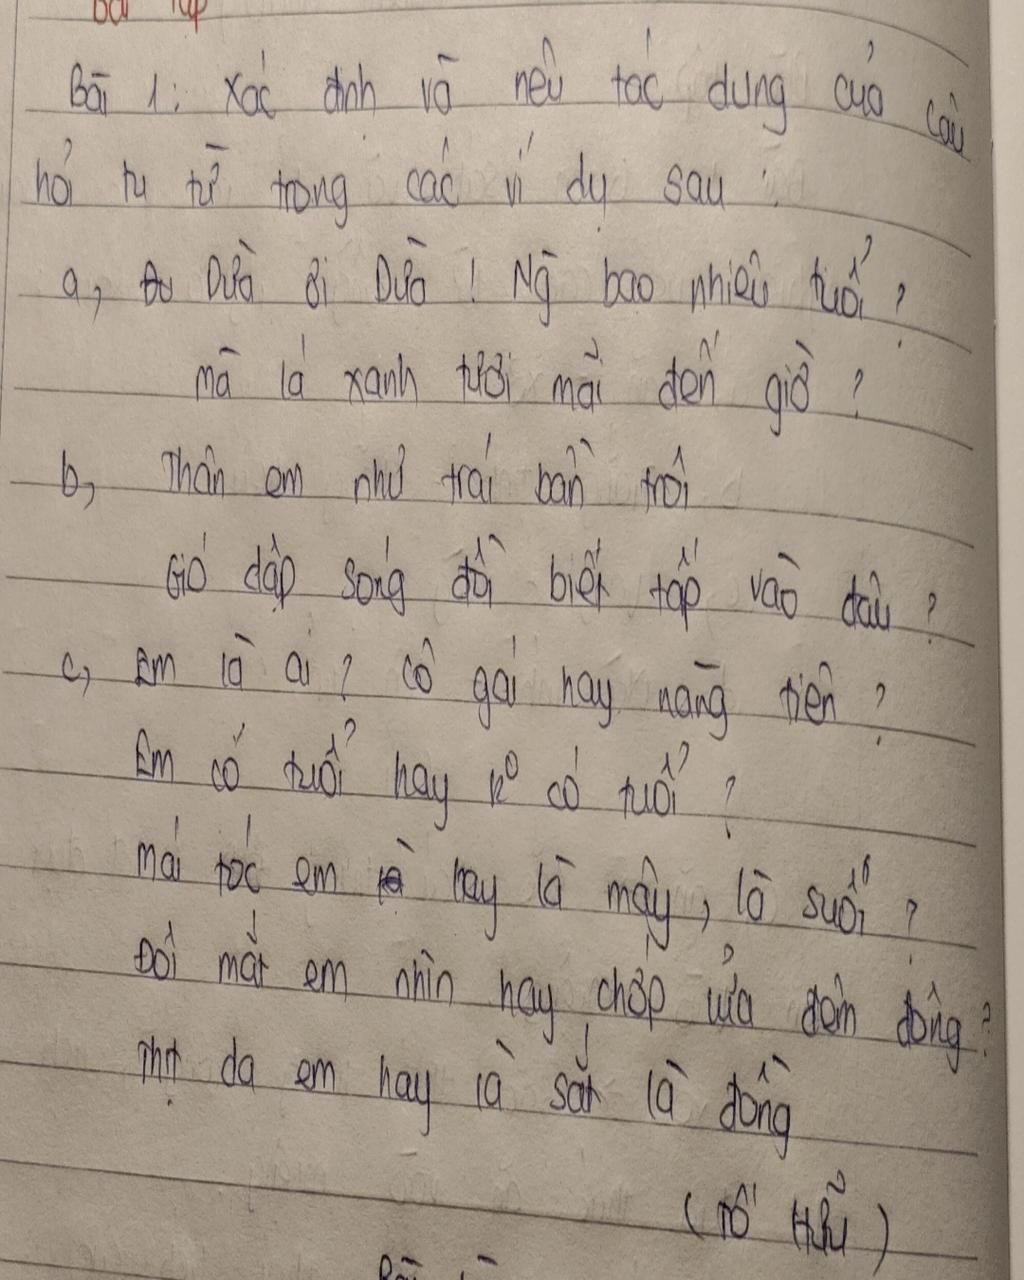 Bài tập
Bài 1: Xác định và nêu tác dụng của câu
hỏi tu từ trong các ví dụ sau:
a, Dừa ơi Dừa! Ng bao nhiêu tuổi?
mà lá xanh tươi mãi đến giờ?
b, Thân em như trái bần trôi
Gió dập sóng dồi biết tấp vào đâu?
c, Em là ai? Cô gái hay nàng tiên?
Em có tuổi hay ko có tuổi?
Mái tóc em hay là mây, là suối?
Đôi mắt em nhìn hay chớp lửa đêm đông?
Thịt da em hay là sắt là đồng
(Tố Hữu)